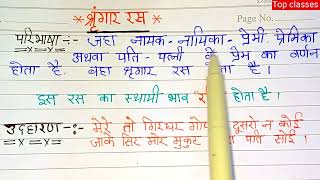 Top classes
* श्रृंगार रस *
Page No.
परिभाषा :- जहां नायक - नायिका - प्रेमी प्रेमिका
अथवा पति - पत्नी के प्रेम का वर्णन
होता है. वहा श्रृंगार रस होता है ।
इस रस का स्थायी भाव
उदहारण -:- मेरे तो गिरधर दूसरो न कोई
जाके सिर मोर मुकुट पति सोई ।